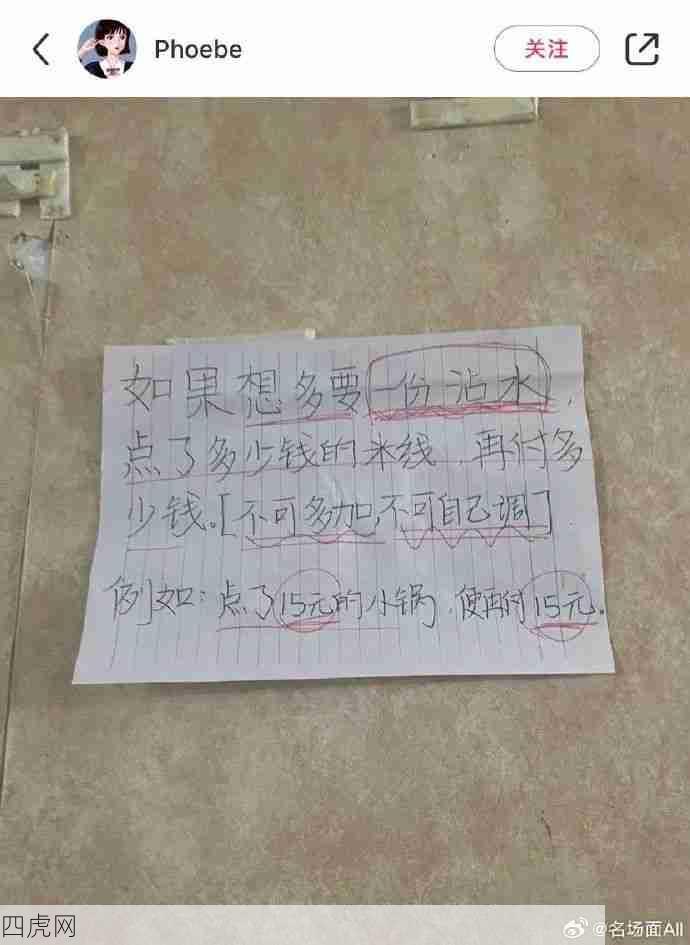 Phoebe
关注
如果想多要一份沾水,
点了多少钱的米线,再付多
少钱。[不可多加,不可自己调]
例如:点了15元的小锅,便再付15元。
四虎网
@名场面All